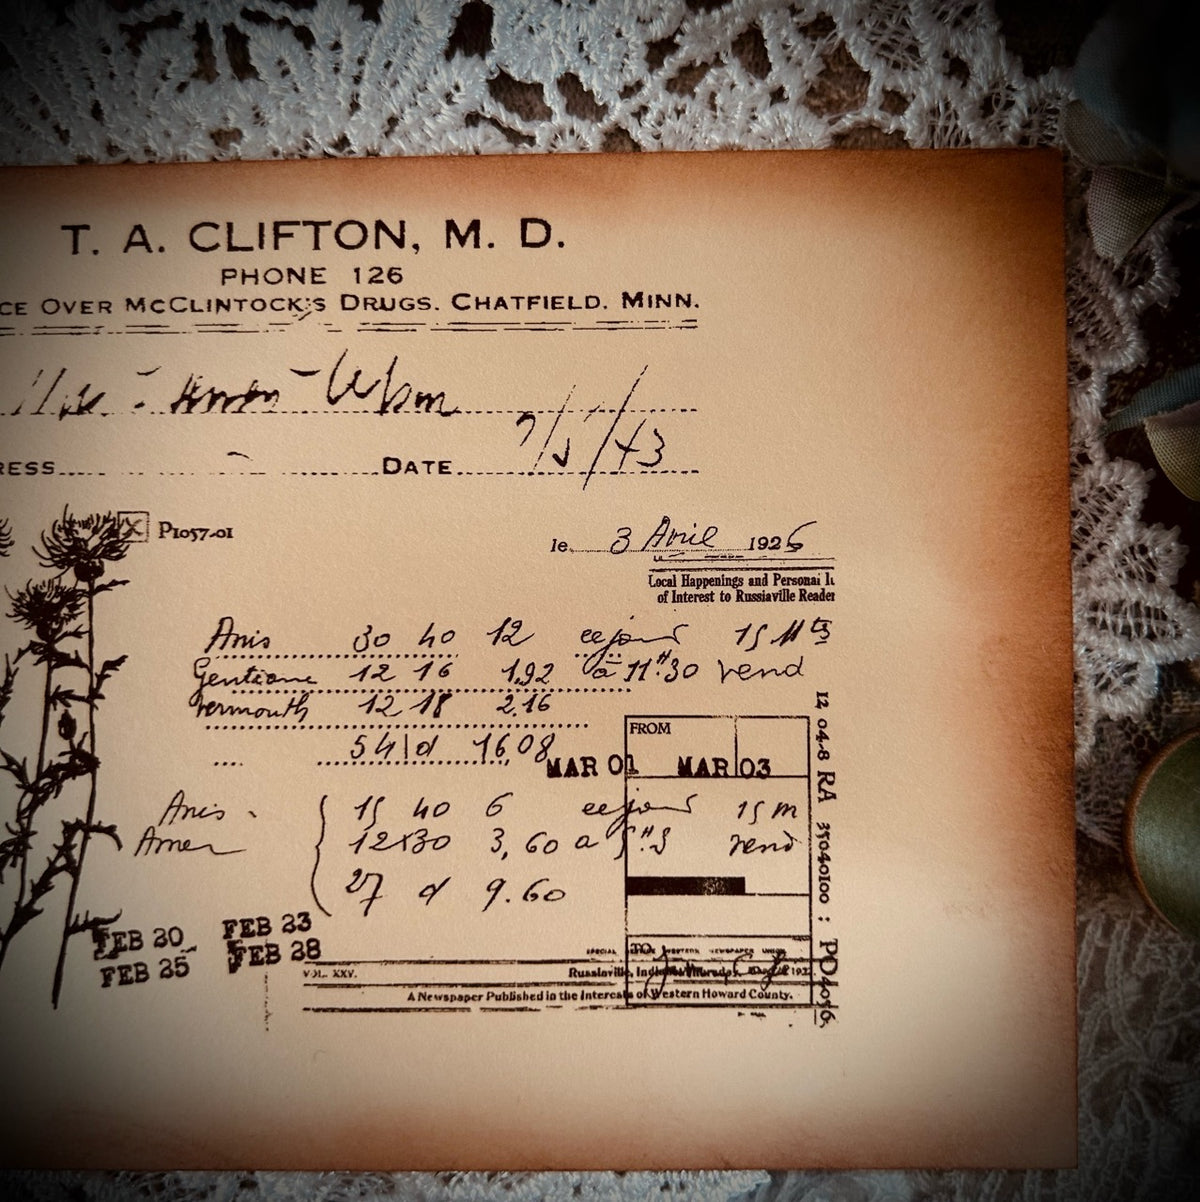 T. A. CLIFTON, M. D.
PHONE 126
CE OVER MCCLINTOCK'S DRUGS. CHATFIELD. MINN.
RESS DATE 7/5/43
P1057-01
le 3 Avril 1926
Local Happenings and Personal
of Interest to Russiaville Reader
Anis 30 40 12
Gentiane 12 16 1,92 à 11H30 rend
Vermouth 12 18 2.16
54 d 16,08
FROM
MAR 01 MAR 03
12 04-8 RA 35040100 : PO4056
Anis 15 40 6 15 m
Amer 12 x 30 3,60 a 5H rend
27 d 9.60
FEB 20 FEB 23
FEB 25 FEB 28
TO
SPECIAL WESTERN NEWSPAPER UNION
VOL. XXV. Russiaville,
A Newspaper Published in the Interests of Western Howard County.